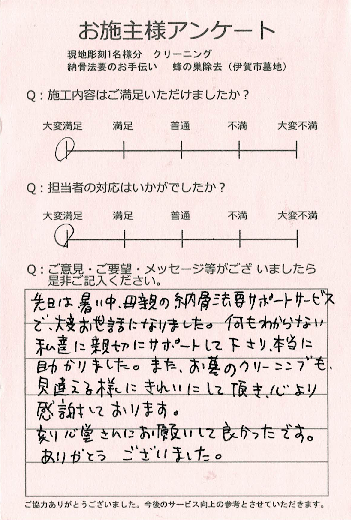 お施主様アンケート
現地彫刻1名様分　クリーニング
納骨法要のお手伝い　蜂の巣除去（伊賀市墓地）
Q：施工内容はご満足いただけましたか？
大変満足　満足　普通　不満　大変不満
Q：担当者の対応はいかがでしたか？
大変満足　満足　普通　不満　大変不満
Q：ご意見・ご要望・メッセージ等がございましたら
是非ご記入ください。
先日は暑い中、母親の納骨法要サポートサービス
で、大変お世話になりました。何もわからない
私達に親切にサポートして下さり、本当に
助かりました。また、お墓のクリーニングも、
見違える様にきれいにして頂き、心より
感謝しております。
刻心堂さんにお願いして良かったです。
ありがとうございました。
ご協力ありがとうございました。今後のサービス向上の参考とさせていただきます。